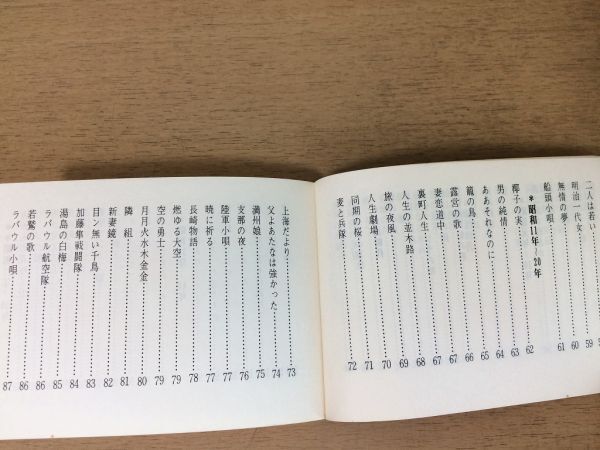 二人は若い
明治一代女……59
無情の夢……60
船頭小唄……61
*昭和11年―20年
椰子の実……62
男の純情……63
ああそれなのに……64
籠の鳥……65
露営の歌……66
妻恋道中……67
裏町人生……67
人生の並木路……68
旅の夜風……69
人生劇場……70
同期の桜……71
麦と兵隊……72
上海だより……73
父よあなたは強かった……74
満州娘……75
支那の夜……76
陸軍小唄……77
暁に祈る……77
長崎物語……78
燃ゆる大空……79
空の勇士……79
月月火水木金金……80
隣組……81
新妻鏡……82
目ン無い千鳥……83
加藤隼戦闘隊……84
湯島の白梅……85
ラバウル航空隊……86
若鷲の歌……86
ラバウル小唄……87